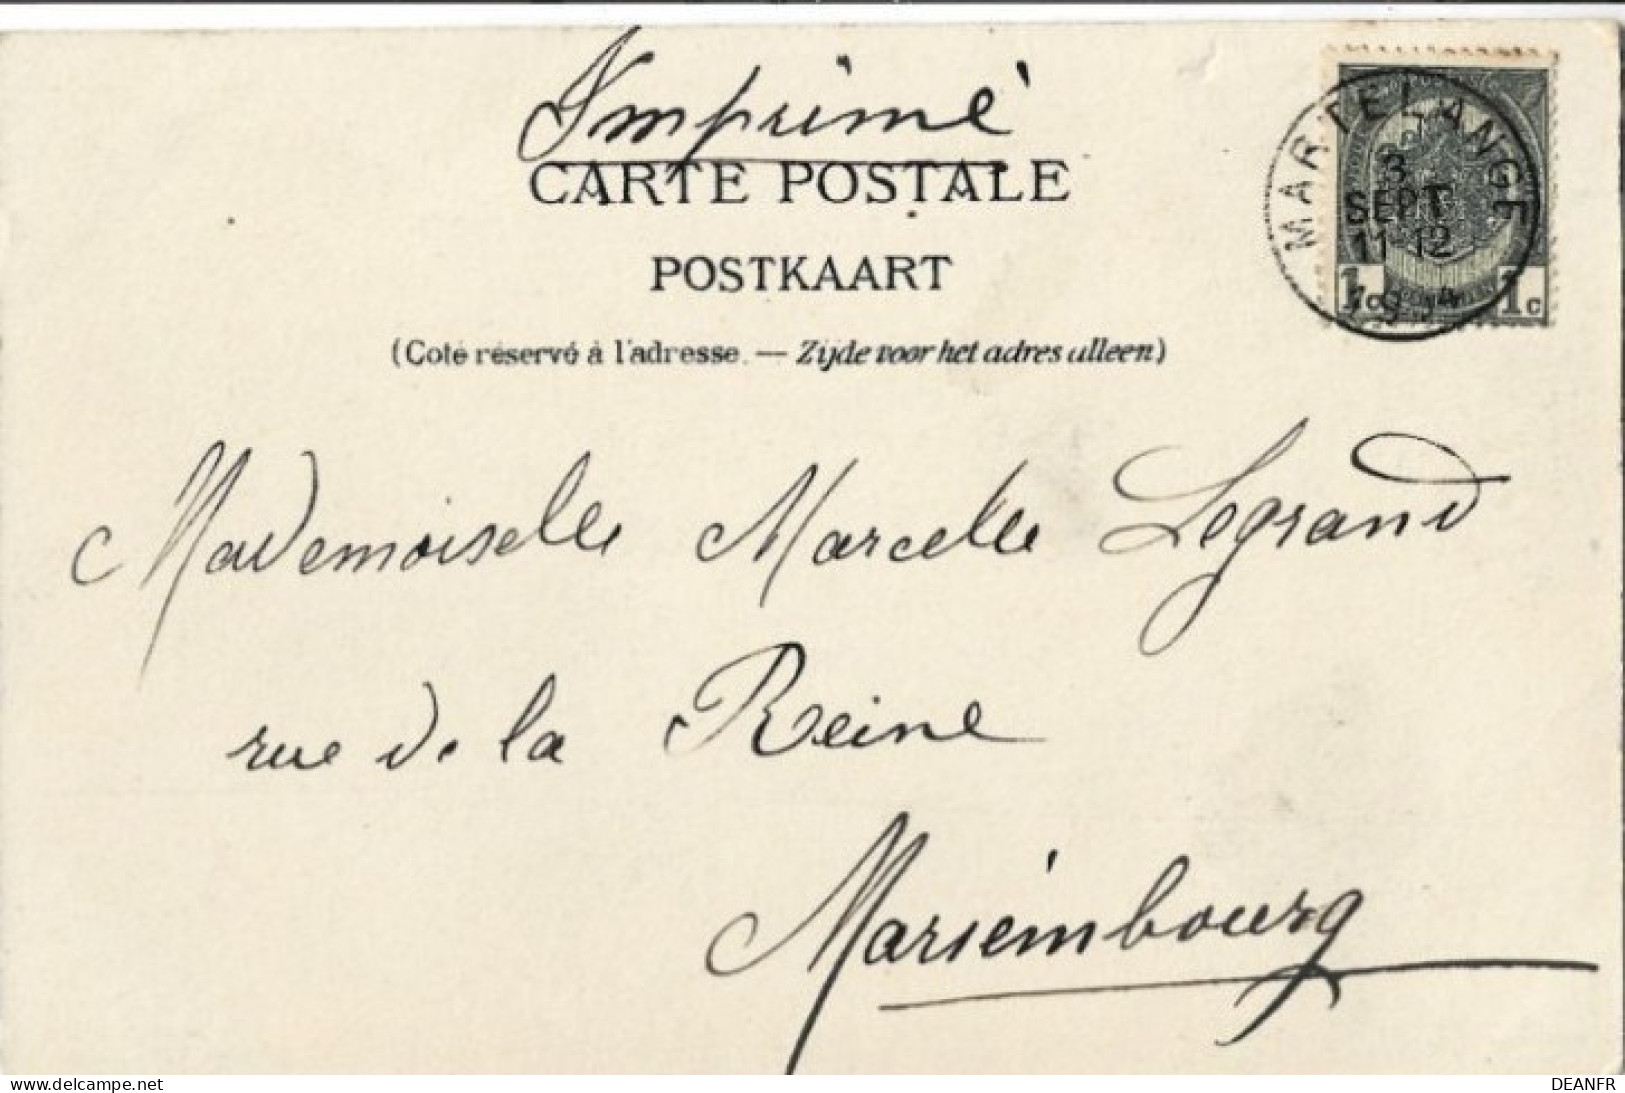 Imprimé
CARTE POSTALE
POSTKAART
(Coté réservé à l'adresse. — Zijde voor het adres alleen)
MARTELANGE
3
SEPT
11-12
1c 1c
Mademoiselle Marcelle Legrand
rue de la Reine
Mariembourg
www.delcampe.net
DEANFR